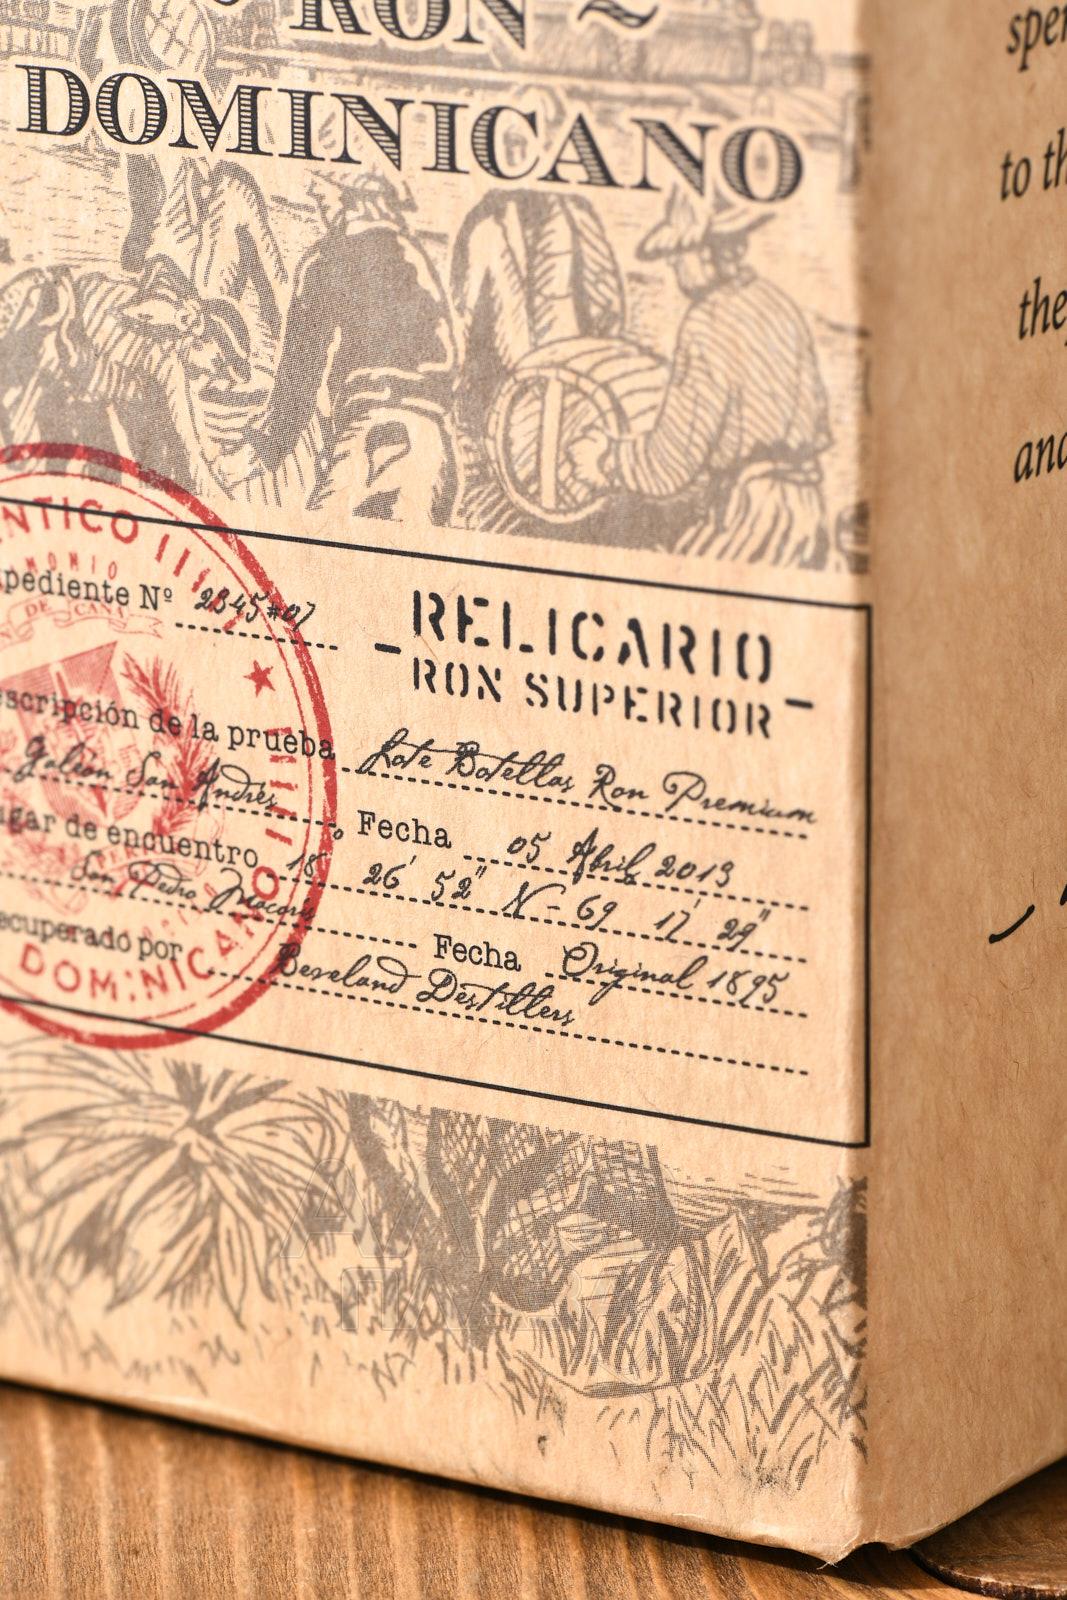 RON ~
DOMINICANO
NTICO
MONIO
DE CANA
pediente Nº 2345#07
RELICARIO
RON SUPERIOR
escripción de la prueba Lote Botellas Ron Premium
Galeón San Andrés
Fecha 05 Abril 2013
gar de encuentro 18° 26' 52" N - 69 17' 29"
San Pedro Macorís
Fecha Original 1895
ecuperado por Beveland Destillers
DOMINICANO
sper
to th
they
and